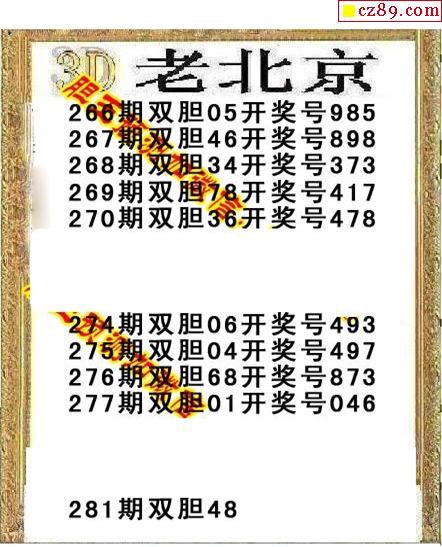 cz89.com
3D 老北京
266期双胆05开奖号985
267期双胆46开奖号898
268期双胆34开奖号373
269期双胆78开奖号417
270期双胆36开奖号478
274期双胆06开奖号493
275期双胆04开奖号497
276期双胆68开奖号873
277期双胆01开奖号046
281期双胆48